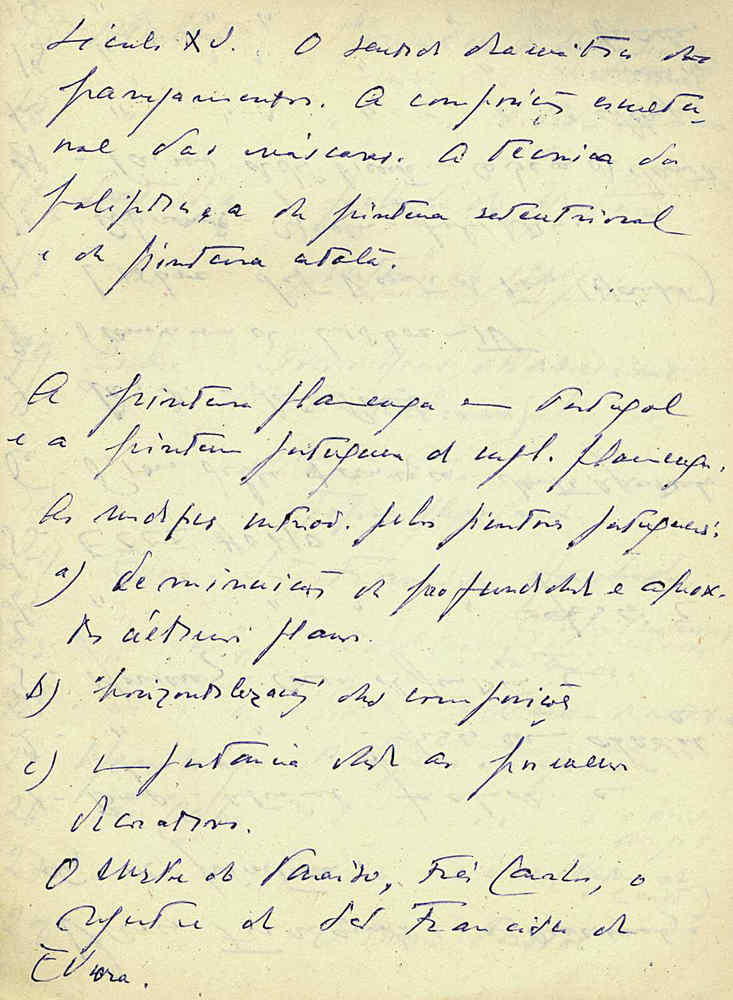 século XV. O sentido dramático dos
panejamentos. A composição escultu-
ral das máscaras. A técnica da
da pintura setentrional
e da pintura catalã.
A pintura flamenga em Portugal
e a pintura portuguesa de infl. flamenga.
As modif introd. pelos pintores portugueses:
a) diminuição da profundidade e aprox.
dos últimos planos.
b) "horizontalização" das composições
c) importância dada ao pormenor
decorativo.
O Mestre do Paraíso, Frei Carlos, o
de São Francisco de
Évora.